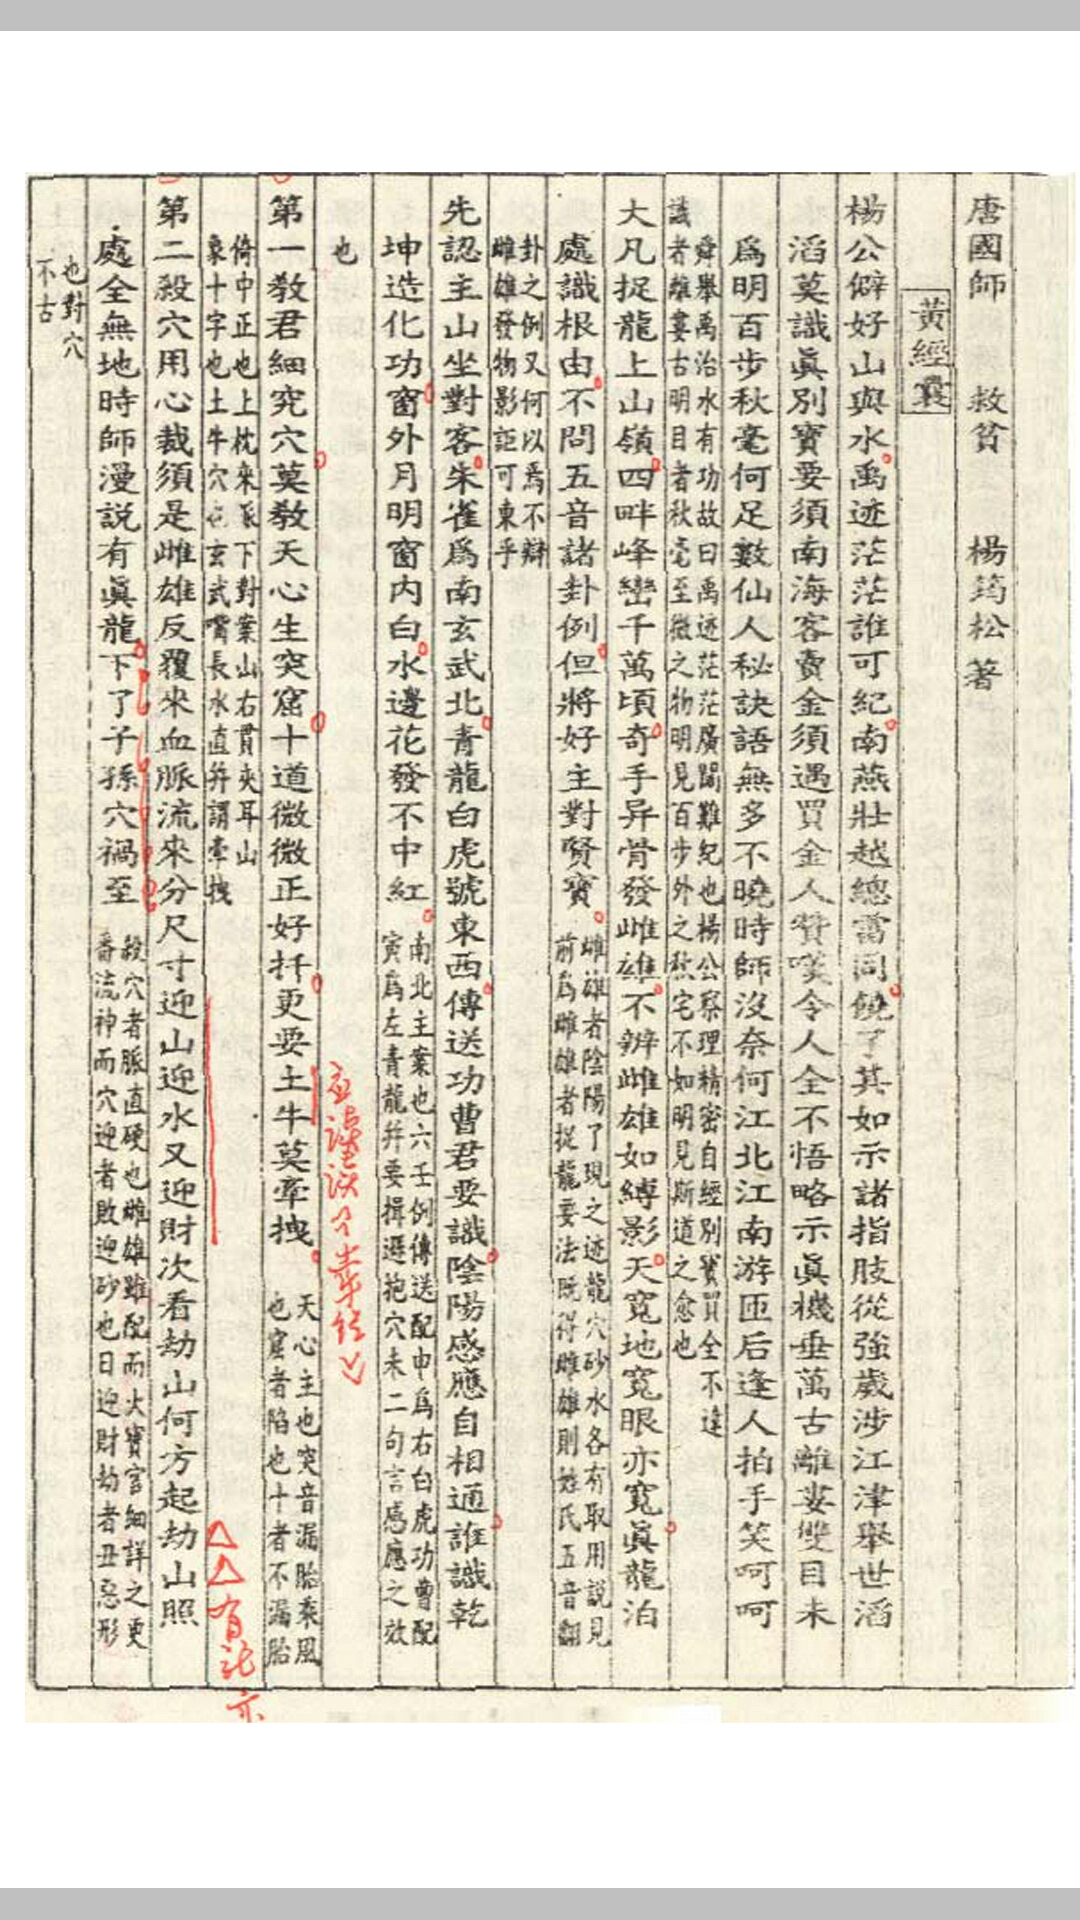 唐國師 救貧 楊筠松著
黃經囊
楊公僻好山與水禹迹茫茫誰可紀南燕壯越總當同饒了其如示諸指肢從強歲涉江津舉世滔
滔莫識眞別寶要須南海客賣金須遇買金人贊嘆令人全不悟略示眞機垂萬古離婁雙目未
爲明百步秋毫何足數仙人秘訣語無多不曉時師沒奈何江北江南游匝后逢人拍手笑呵呵
舜舉禹治水有功故曰禹迹茫茫廣闊難紀也楊公察理精密自經別寶買全不達
識者離婁古明目者秋毫至微之物明見百步外之秋宅不如明見斯道之愈也
大凡捉龍上山嶺四畔峰巒千萬頃奇手异骨發雌雄不辨雌雄如縛影天寬地寬眼亦寬眞龍泊
處識根由不問五音諸卦例但將好主對賢賓
雌雄者陰陽了現之迹龍穴砂水各有取用說見
前爲雌雄者捉龍要法既得雌雄則姓氏五音翻
卦之例又何以爲不辯
雌雄發物影詎可東乎
先認主山坐對客朱雀爲南玄武北青龍白虎號東西傳送功曹君要識陰陽感應自相通誰識乾
坤造化功窗外月明窗内白水邊花發不中紅
南北主案也六壬例傳送配申爲右白虎功曹配
寅爲左青龍幷要揖遜抱穴未二句言感應之效
也
第一教君細究穴莫教天心生突窟十道微微正好扦更要土牛莫牽拽
天心主也突音漏胎乘風
也窟者陷也十者不漏胎
倚中正也上枕來㐲下對案山右貫夾耳山
象十字也土牛穴也玄武嘴長水直幷謂牽拽
第二殺穴用心裁須是雌雄反覆來血脈流來分尺寸迎山迎水又迎財次看劫山何方起劫山照
處全無地時師漫説有眞龍下了子孫穴禍至
殺穴者脈直硬也雌雄雖配而火實宮細詳之更
番流神而穴迎者敗迎砂也日迎財劫者丑惡形
也對穴
不古